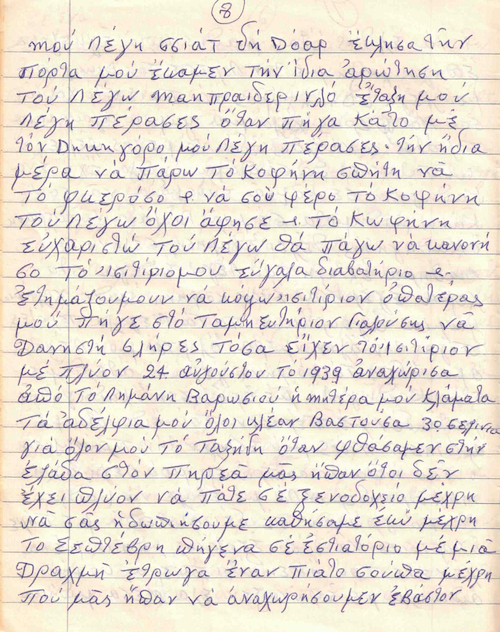 8
μού λέγη σσιάτ δή Dόαρ έκλησα τήν
πόρτα μού έκαμεν τήν ίδια άρώτηση
τού λέγω έταξη μού
λέγη πέρασες όταν πήγα κάτο μέ
τόν Dηκηγόρο μού λέγη πέρασες. τήν ήδια
μέρα νά πάρω τό κοφήνη σπήτη νά
τό φκερόσο & νά σού φέρο τό κοφήνη
τού λέγω όχοι άφησε & τό κωφήνη
εύχαριστώ τού λέγω θά πάγω νά κανονή
σο τό ισιτίριομου εύγαλα διαβατήριο &
έτημάζουμουν νά κόψω ισιτίριον ό πατέρας
μού πήγε στό Ταμηευτήριον Γιαλούσης νά
Dανηστή σλήρες τόσα είχεν τό ισιτίριον
μέ πλύον 24 αύγούστου τό 1939 άναχώρισα
άπό τό λημάνη Βαρωσιού ή μητέρα μού κλάματα
τά άδέλφια μού όλοι κλέαν βαστούσα 30 σελίνια
γιά όλον μού τό ταξήδη όταν φθάσαμεν στήν
έλάδα στόν πηρεά μάς ήπαν ότοι δέν
έχει πλύον νά πάτε σέ ξενοδοχείο μέχρη
νά σάς ήδωπιήσουμε καθήσαμε έκύ μέχρη
τό σεπτέβρη πήγενα σέ έστιατόριο μέ μιά
Dραχμή έτρωγα έναν πιάτο σούπα μέχρη
πού μάς ήπαν νά άναχωρήσουμεν έβάστον